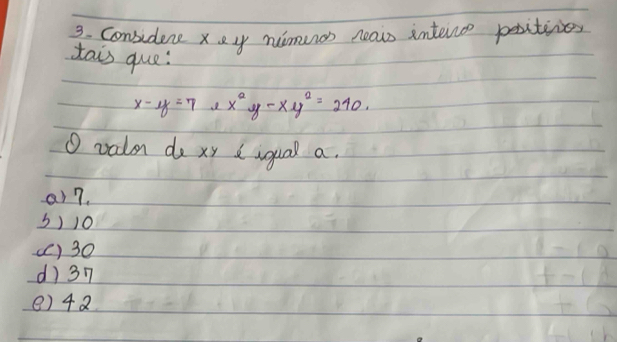 3- Considere x e y números reais inteiros positivos
tais que:
x-y=7 e x²y-xy²=210.
O valor de xy é igual a.
a) 7.
b) 10
c) 30
d) 37
e) 42